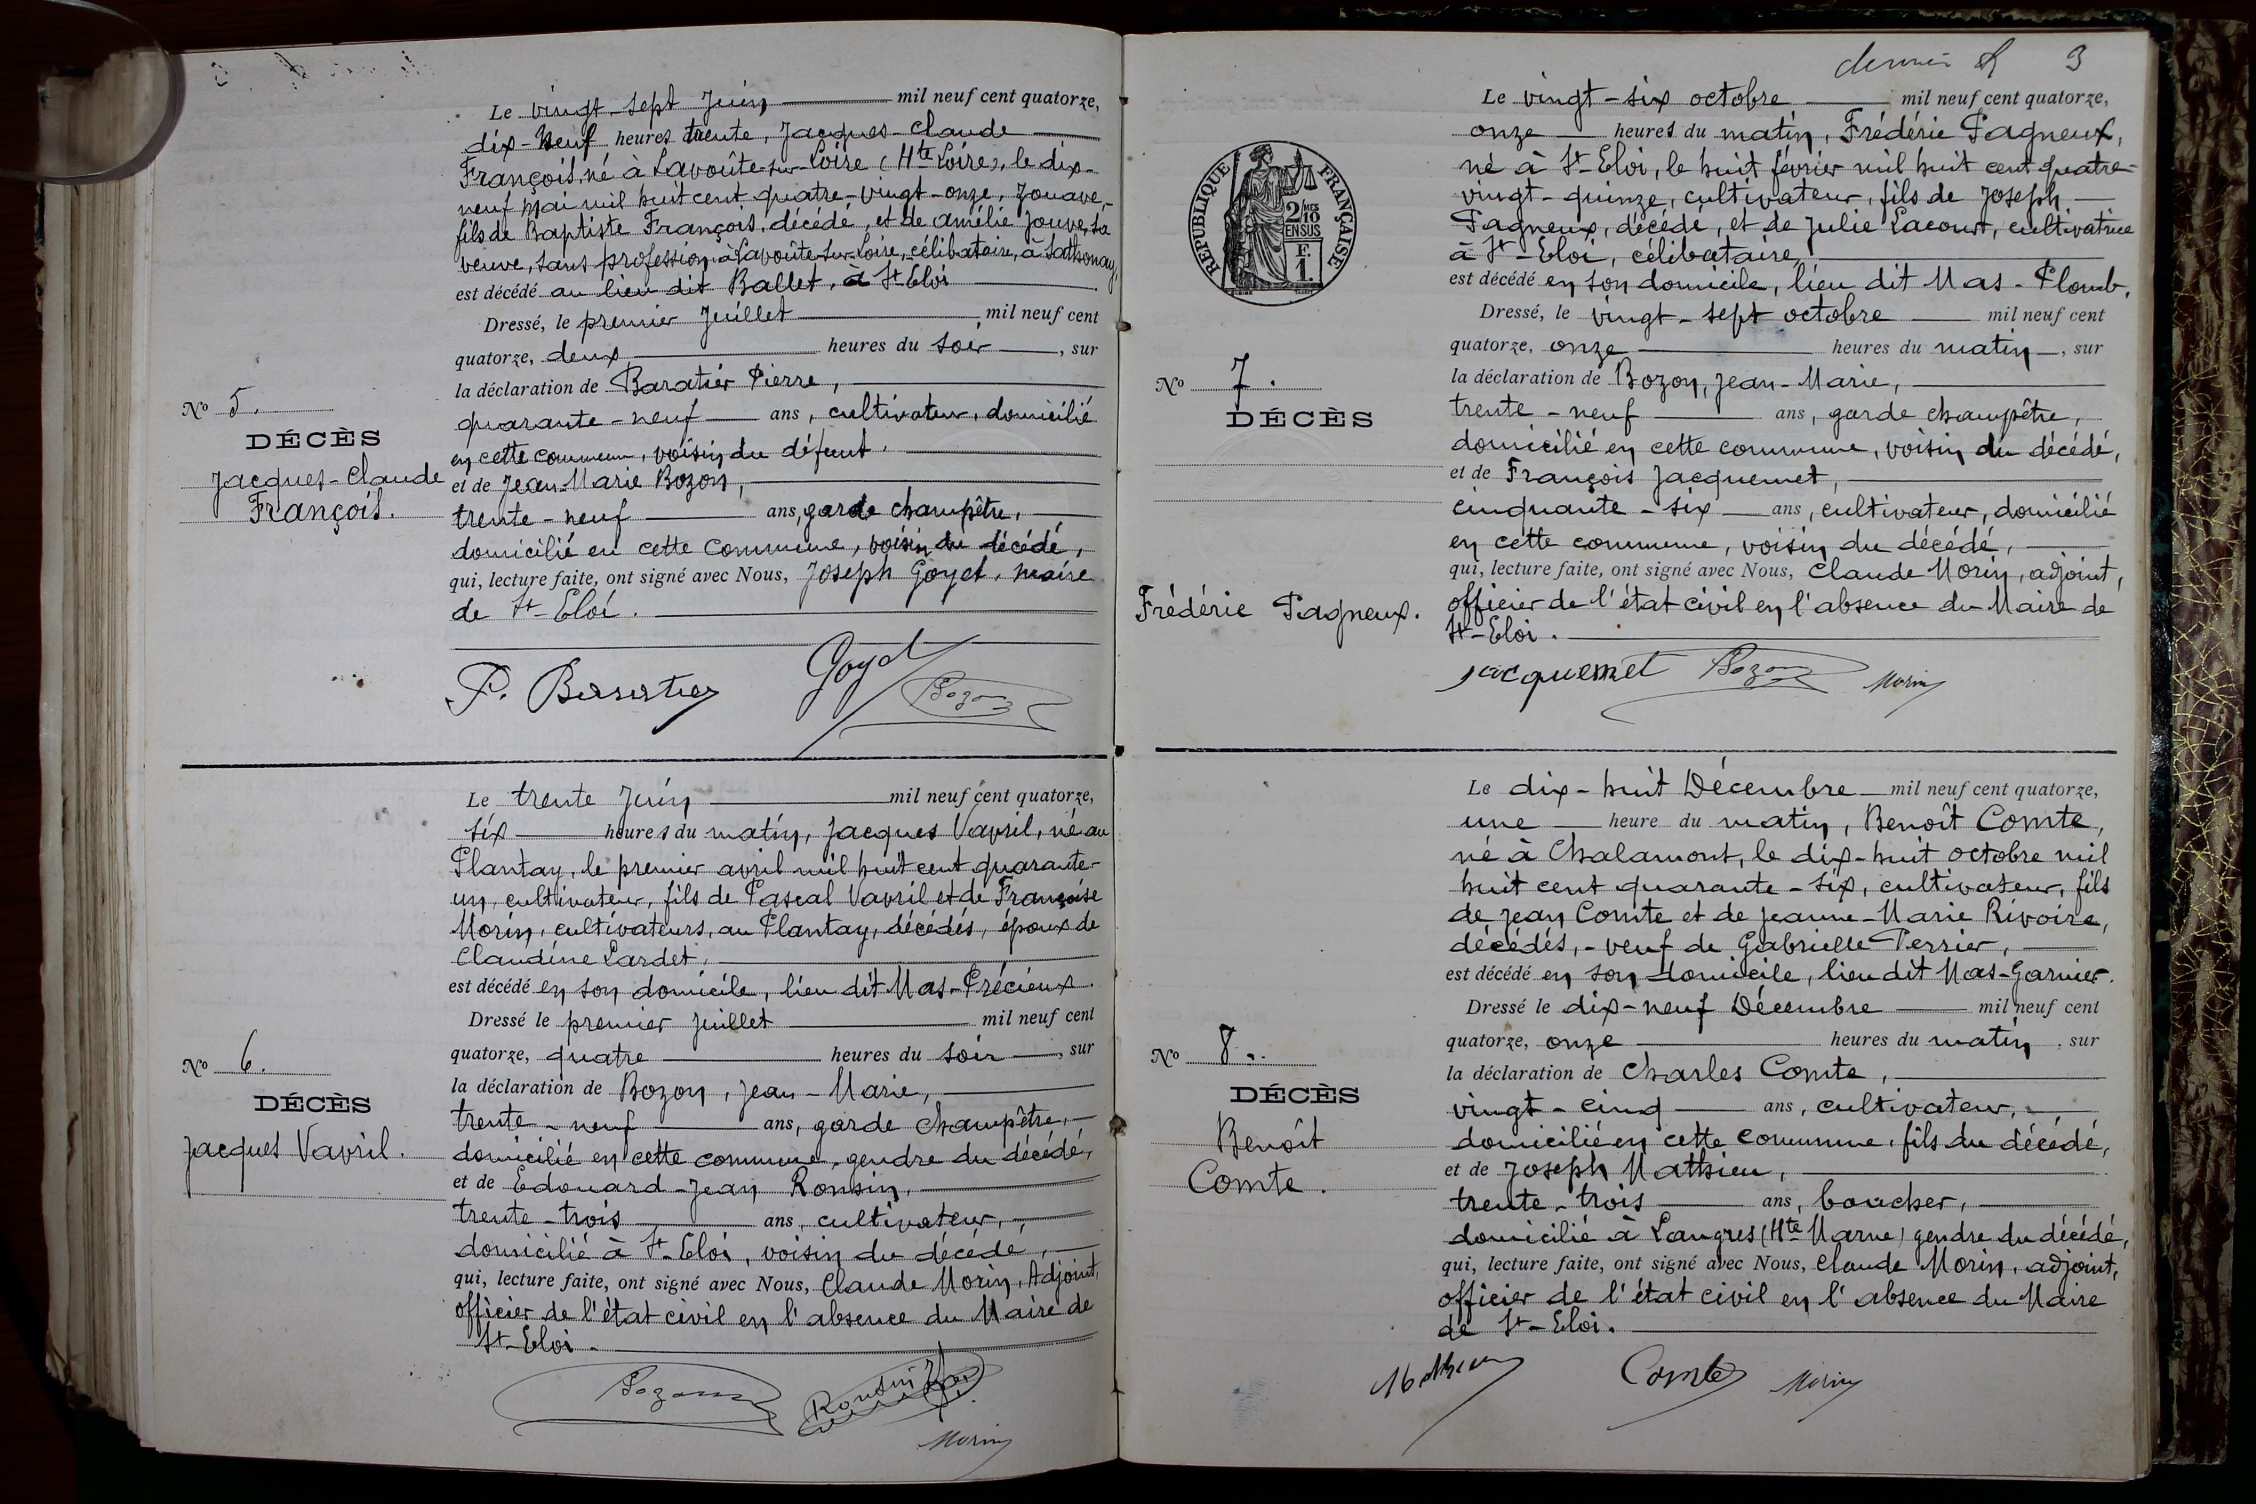 Le vingt-sept Juin mil neuf cent quatorze,
dix-neuf heures trente, Jacques-Claude
François, né à Lavoûte-sur-Loire (Hte Loire), le dix-
neuf mai mil huit cent quatre-vingt-onze, zouave,
fils de Baptiste François, décédé, et de Amélie Jouve, sa
veuve, sans profession, à Lavoûte-sur-Loire, célibataire, à Sathonay,
est décédé au lieu dit Ballet, à St-Eloi
Dressé, le premier Juillet mil neuf cent
quatorze, deux heures du soir, sur
la déclaration de Baratier Pierre,
quarante-neuf ans, cultivateur, domicilié
en cette commune, voisin du défunt.
et de Jean-Marie Bozon,
trente-neuf ans, garde champêtre,
domicilié en cette commune, voisin du décédé,
qui, lecture faite, ont signé avec Nous, Joseph Goyet, maire
de St-Eloi.
No 5.
DÉCÈS
Jacques-Claude
François.
P. Baratier Goyet Bozon
Le trente Juin mil neuf cent quatorze,
six heures du matin, Jacques Vavril, né au
Plantay, le premier avril mil huit cent quarante-
un, cultivateur, fils de Pascal Vavril et de Françoise
Morin, cultivateurs, au Plantay, décédés, époux de
Claudine Lardet,
est décédé en son domicile, lieu dit Mas-Précieux.
Dressé le premier Juillet mil neuf cent
quatorze, quatre heures du soir, sur
la déclaration de Bozon, Jean-Marie,
trente-neuf ans, garde champêtre,
domicilié en cette commune, gendre du décédé,
et de Edouard-Jean Ronsin,
trente-trois ans, cultivateur,
domicilié à St-Eloi, voisin du décédé,
qui, lecture faite, ont signé avec Nous, Claude Morin, Adjoint,
officier de l'état civil en l'absence du Maire de
St-Eloi.
No 6.
DÉCÈS
Jacques Vavril.
Bozon Ronsin
Morin
3
Le vingt-six octobre mil neuf cent quatorze,
onze heures du matin, Frédéric Pagneux,
né à St-Eloi, le huit février mil huit cent quatre-
vingt-quinze, cultivateur, fils de Joseph
Pagneux, décédé, et de Julie Lacourt, cultivatrice
à St-Eloi, célibataire,
est décédé en son domicile, lieu dit Mas-Plomb.
Dressé, le vingt-sept octobre mil neuf cent
quatorze, onze heures du matin, sur
la déclaration de Bozon, Jean-Marie,
trente-neuf ans, garde champêtre,
domicilié en cette commune, voisin du décédé,
et de François Jacquemet,
cinquante-six ans, cultivateur, domicilié
en cette commune, voisin du décédé,
qui, lecture faite, ont signé avec Nous, Claude Morin, adjoint,
officier de l'état civil en l'absence du Maire de
St-Eloi.
RÉPUBLIQUE FRANÇAISE
2/10 MES
EN SUS
F.
1.
No 7.
DÉCÈS
Frédéric Pagneux.
Jacquemet Bozon Morin
Le dix-huit Décembre mil neuf cent quatorze,
une heure du matin, Benoît Comte,
né à Chalamont, le dix-huit octobre mil
huit cent quarante-six, cultivateur, fils
de Jean Comte et de Jeanne-Marie Rivoire,
décédés, - veuf de Gabrielle Perrier,
est décédé en son domicile, lieu dit Mas-Garnier.
Dressé le dix-neuf Décembre mil neuf cent
quatorze, onze heures du matin, sur
la déclaration de Charles Comte,
vingt-cinq ans, cultivateur,
domicilié en cette commune, fils du décédé,
et de Joseph Mathieu,
trente-trois ans, boucher,
domicilié à Langres (Hte Marne) gendre du décédé,
qui, lecture faite, ont signé avec Nous, Claude Morin, adjoint,
officier de l'état civil en l'absence du Maire
de St-Eloi.
No 8.
DÉCÈS
Benoît
Comte.
Mathieu Comte Morin